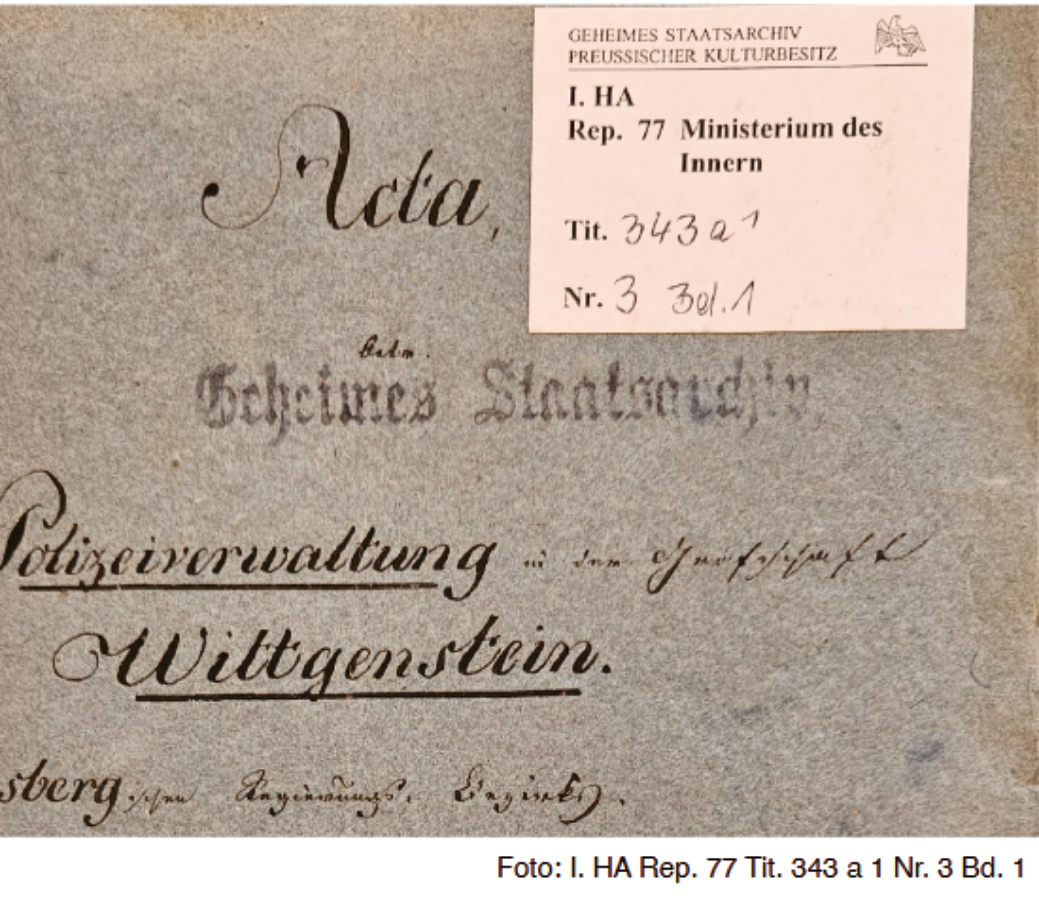 GEHEIMES STAATSARCHIV
PREUSSISCHER KULTURBESITZ
I. HA
Rep. 77 Ministerium des
Innern
Tit. 343 a 1
Nr. 3 Bd. 1
Acta,
betr.
Geheimes Staatsarchiv
Polizeiverwaltung in der Grafschaft
Wittgenstein.
sberg.schen Regierungs-Bezirks.
Foto: I. HA Rep. 77 Tit. 343 a 1 Nr. 3 Bd. 1